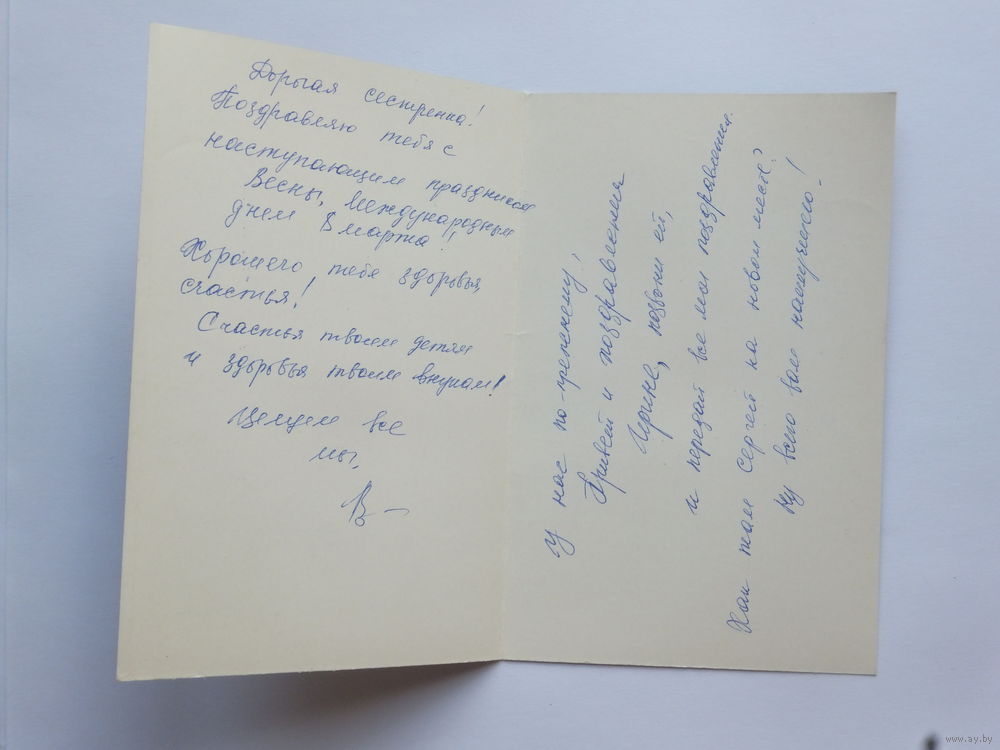 Дорогая сестренка!
Поздравляю тебя с
наступающим праздником
Весны, Международным
днем 8 марта!
Хорошего тебе здоровья,
счастья!
Счастья твоим детям
и здоровья твоим внукам!
Целуем все
мы,
В
У нас по-прежнему!
Привет и поздравления
Ирине, позвони ей,
и передай все мои поздравления.
Как там Сергей на новом месте?
Ну всего вам наилучшего!
www.ay.by